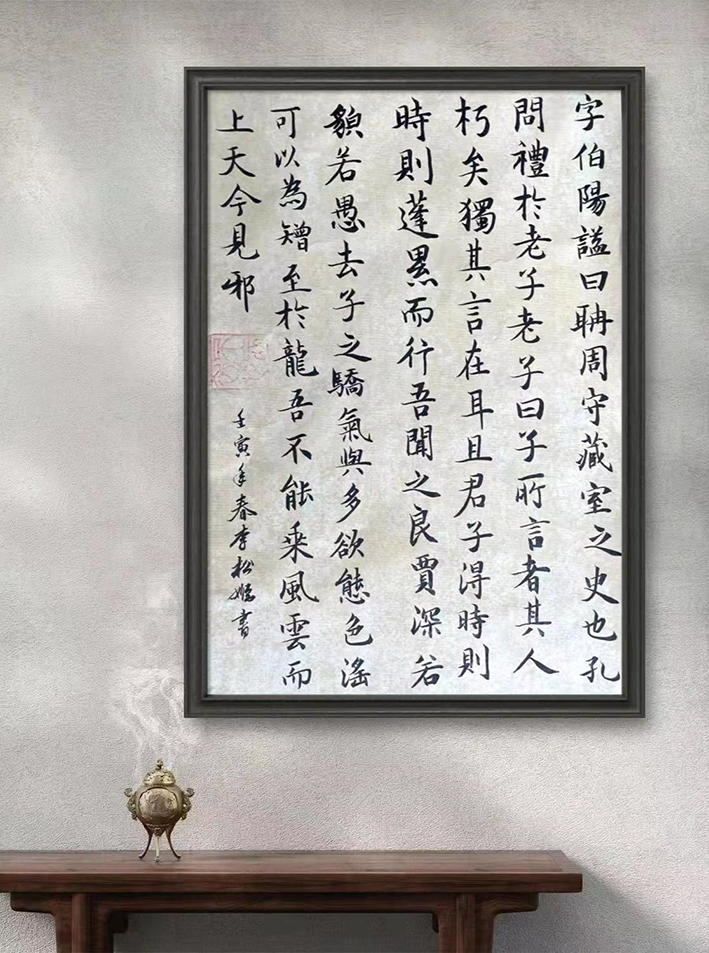 字伯陽謚曰聃周守藏室之史也孔
問禮於老子老子曰子所言者其人
朽矣獨其言在耳且君子得時則
時則蓬累而行吾聞之良賈深若
䫉若愚去子之驕氣與多欲態色滛
可以為矰至於龍吾不能乘風雲而
上天今見邪
壬寅年春李松書